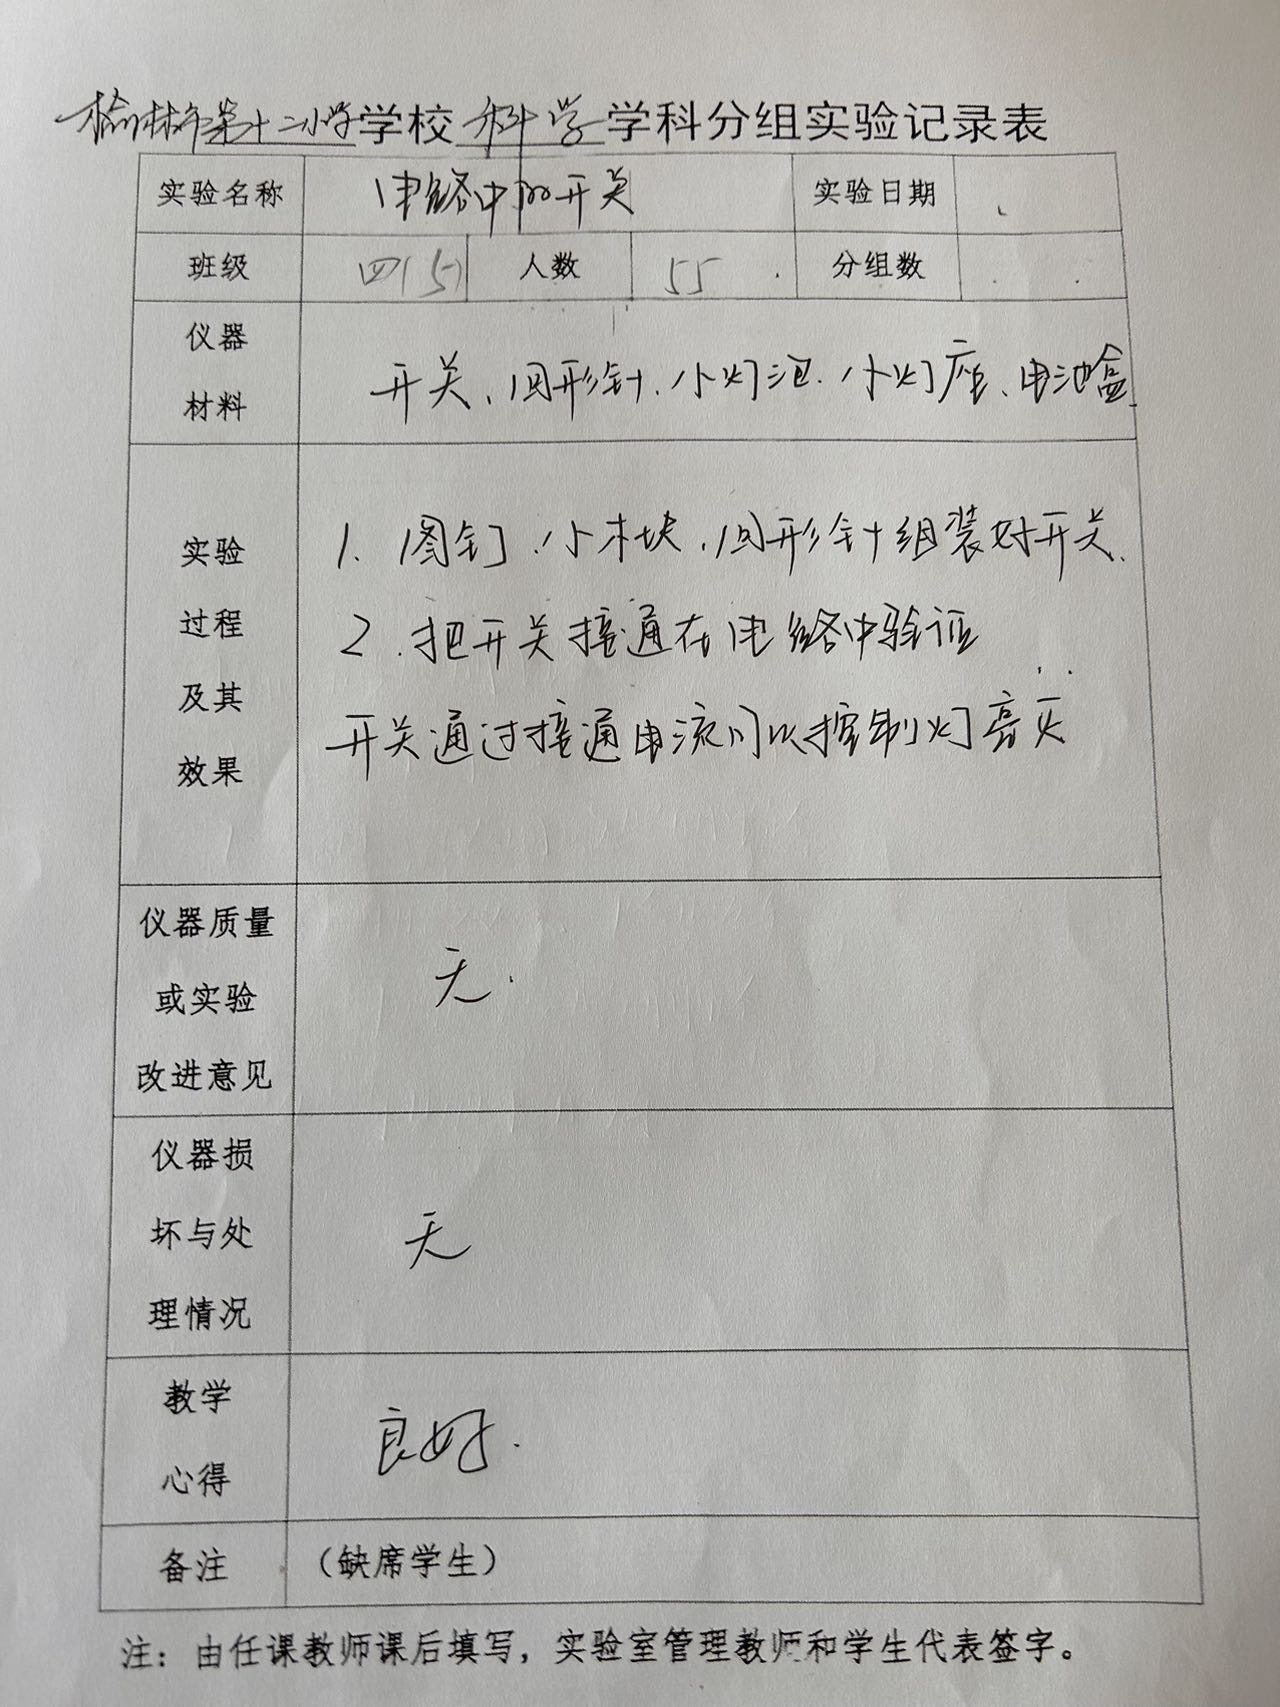 榆林市第十二小学学校 科学 学科分组实验记录表
实验名称 电路中的开关 实验日期
班级 四(5) 人数 55 分组数
仪器
材料
开关、回形针、小灯泡、小灯座、电池盒
实验
过程
及其
效果
1、图钉、小木块、回形针组装好开关.
2.把开关接通在电路中验证
开关通过接通电流可以控制灯亮灭
仪器质量
或实验
改进意见
无.
仪器损
坏与处
理情况
无
教学
心得
良好.
备注 (缺席学生)
注：由任课教师课后填写，实验室管理教师和学生代表签字。